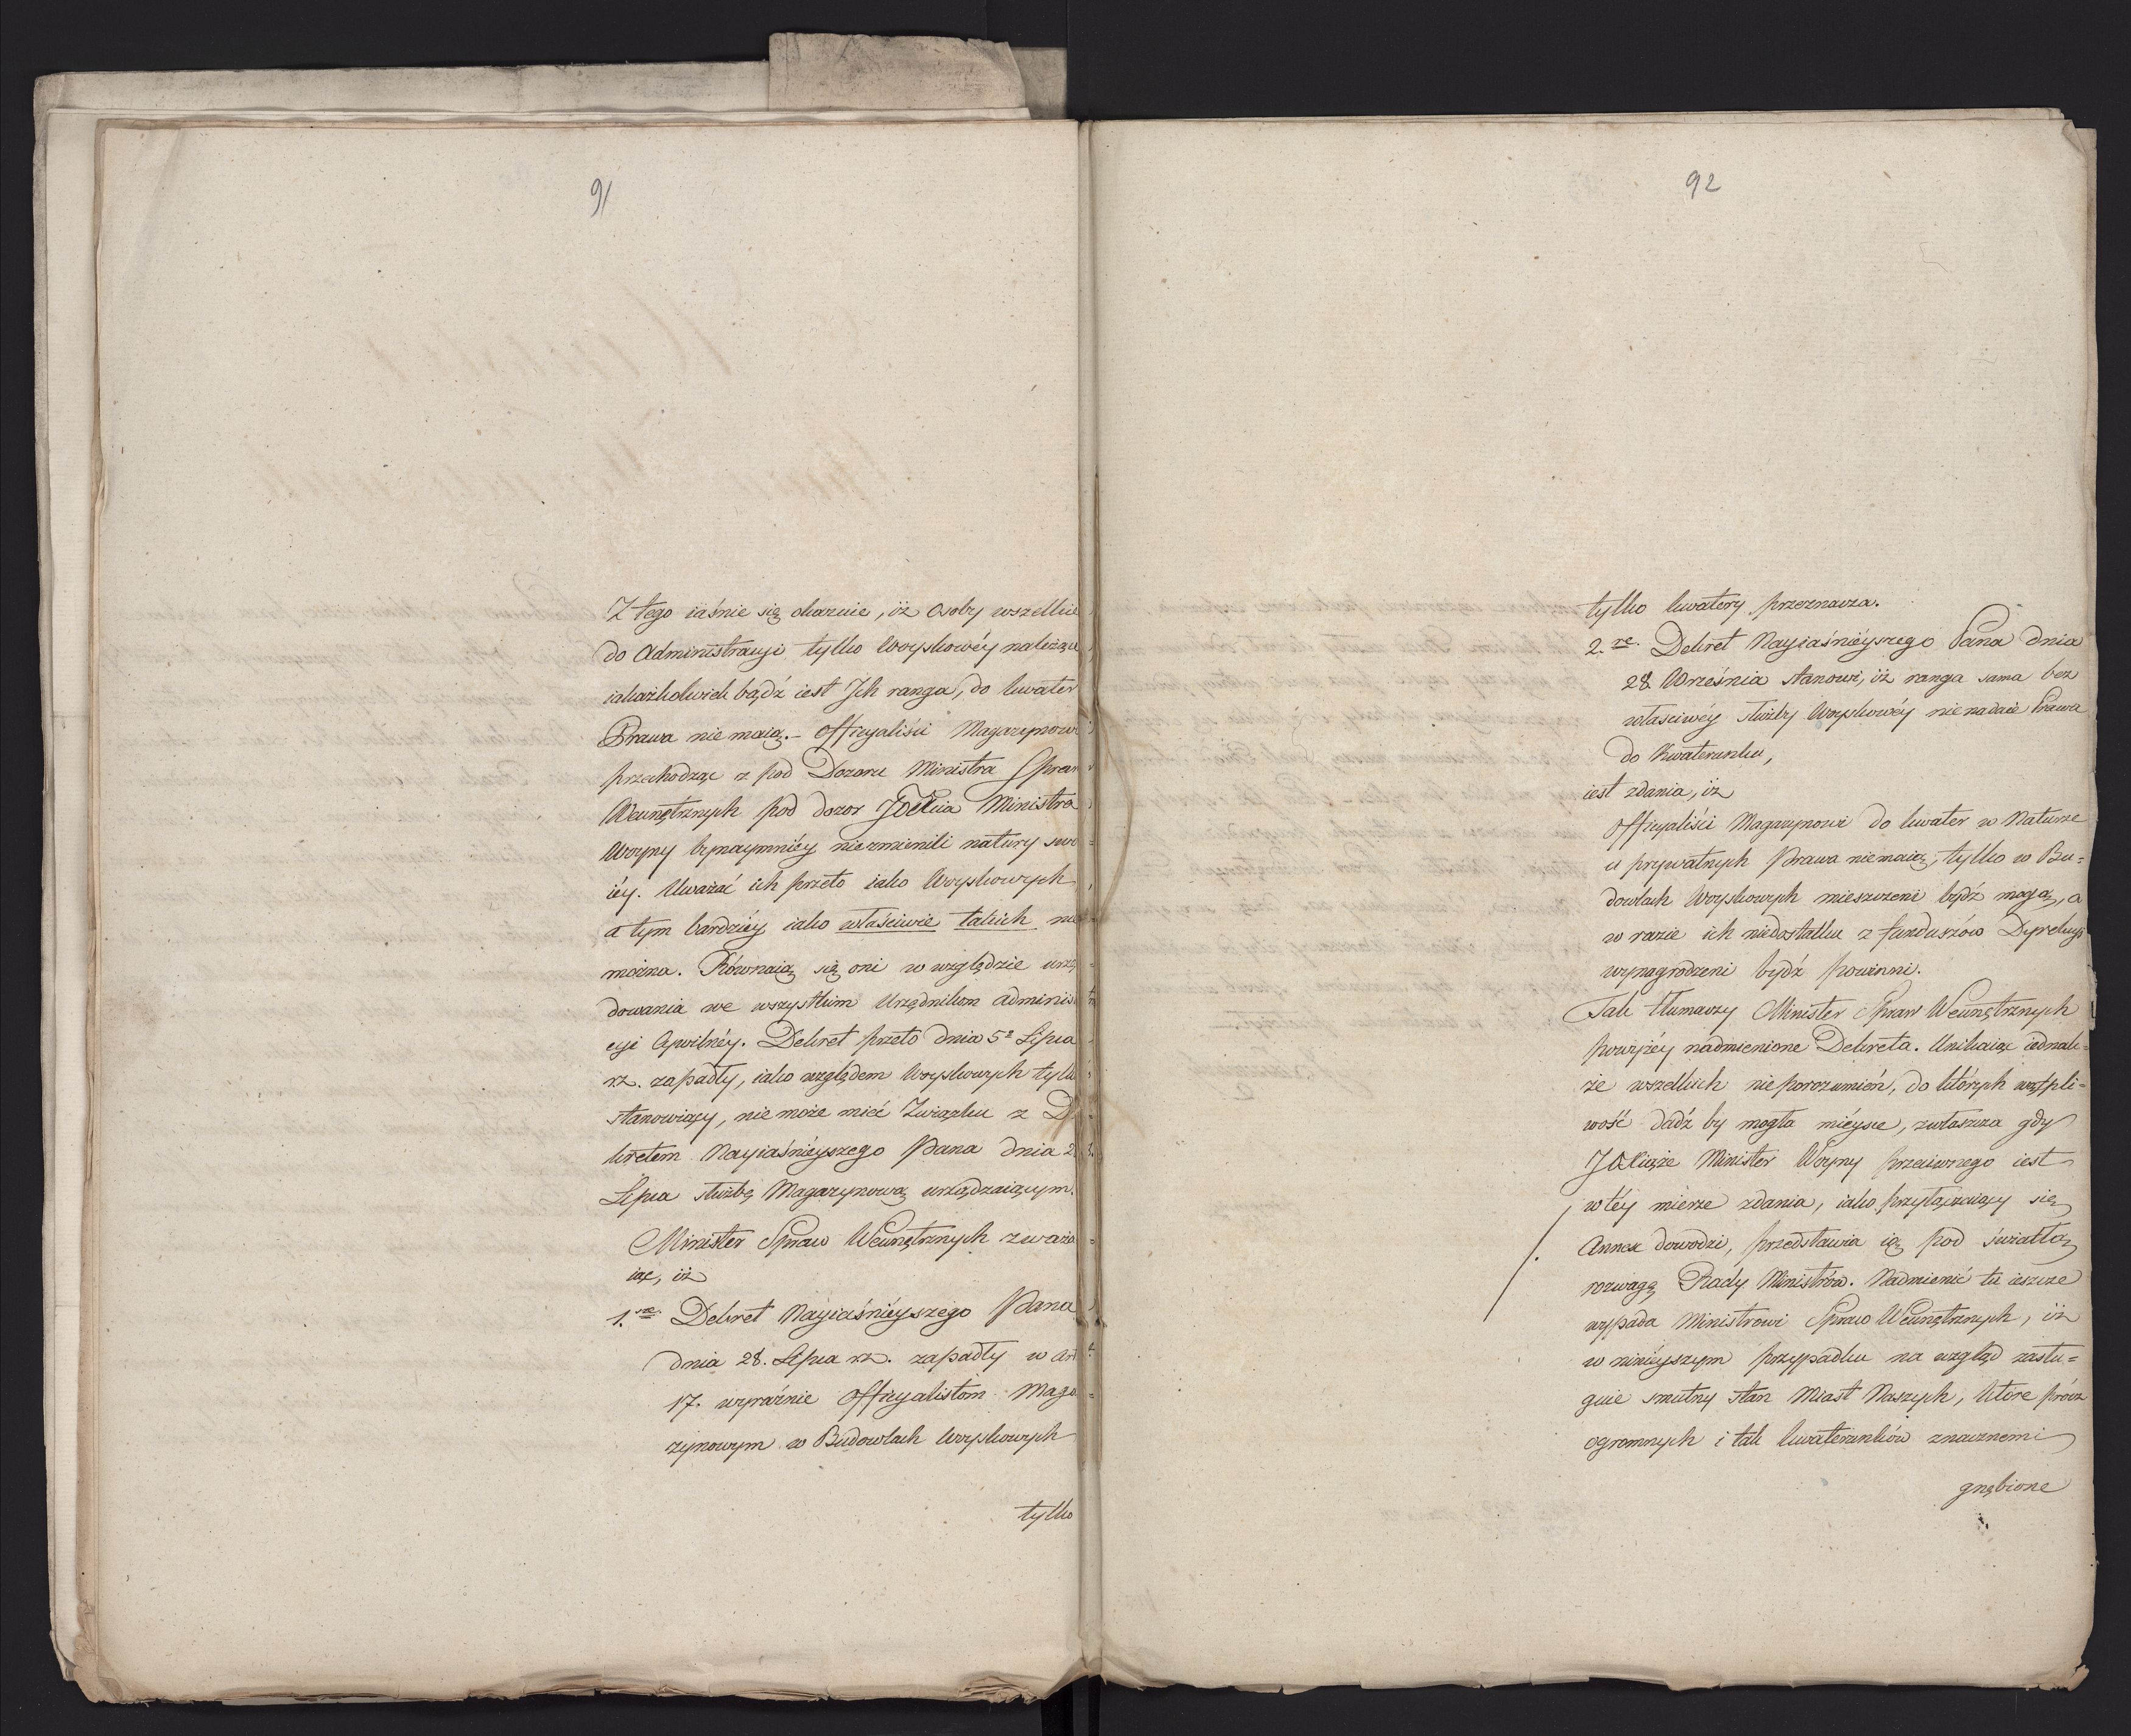 91
Z tego iaśnie się okazuie, iż Osoby wszelkie
do Administracyi tylko Woyskowéy należące
iakażkolwiek bądź iest Ich ranga, do kwater
Prawa nie maią. – Officyaliści Magazynowi
przechodząc z pod Dozoru Ministra Spraw
Wewnętrznych pod dozor JOXcia Ministra
Woyny bynaymniéy niezmienili natury swo
iéy. Uważać ich przeto iako Woyskowych
a tym bardziéy iako właściwie takich nie
można. Równaią się oni w względzie urzę
dowania we wszystkim Urzędnikom Adminis
cyi Cywilnéy. Dekret przeto dnia 5º Lipca
rz. zapadły, iako względem Woyskowych tylko
stanowiący, nie może mieć Związku z D
kretem Nayiaśniéyszego Pana dnia 2
Lipca służbę Magazynową urządzaiącym.
Minister Spraw Wewnętrznych zważa
iąc, iż
1.sze Dekret Nayiaśniéyszego Pana
dnia 28. Lipca rz. zapadły w Art
17. wyraźnie Officyalistom Maga
zynowym w Budowlach Woyskowych
tylko
92
tylko kwatery przeznacza.
2.re. Dekret Nayiaśniéyszego Pana dnia
28 Września stanowi, iż ranga sama bez
właściwéy służby Woyskowéy nie nadaie Prawa
do Kwaterunku,
iest zdania, iż
Officyaliści Magazynowi do kwater w Naturze
u prywatnych Prawa niemaią, tylko w Bu=
dowlach Woyskowych mieszczeni bydź mogą, a
w razie ich niedostatku z funduszów Dyrekcyi
wynagrodzeni bydź powinni.
Tak tłumaczy Minister Spraw Wewnętrznych
powyżéy nadmienione Dekreta. Unikaiąc iednak=
że wszelkich nieporozumień, do których wątpli=
wość dadź by mogła mieysce, zwłaszcza gdy
JOXiąże Minister Woyny przeciwnego iest
w téy mierze zdania, iako przyłączaiący się
Annex dowodzi, przedstawia ią pod światłą
rozwagę Rady Ministrów. Nadmienić tu ieszcze
wypada Ministrowi Spraw Wewnętrznych, iż
w ninieyszym przypadku na wzgląd zasłu=
guie smutny stan Miast Naszych, które prócz
ogromnych i tak kwaterunków znacznemi
gnębione